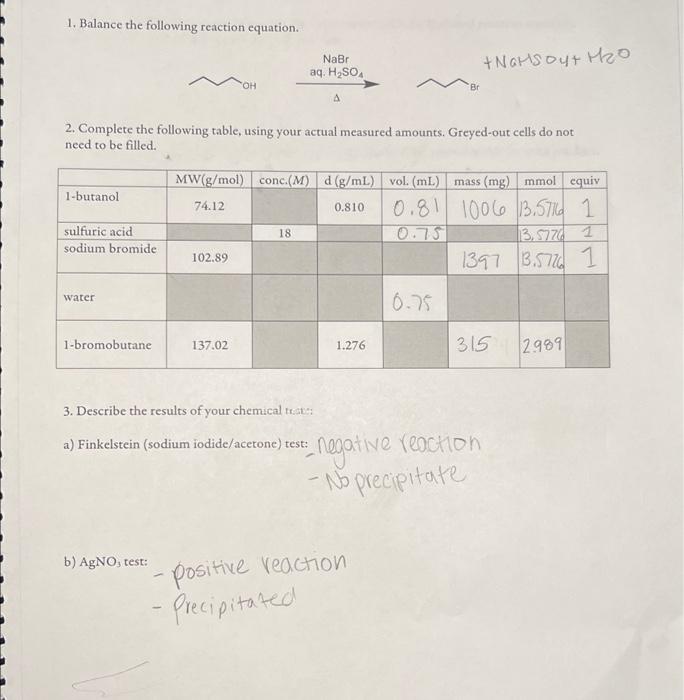 1. Balance the following reaction equation.
NaBr
aq. H₂SO₄
Δ
OH
Br
+ NaHSO4 + H2O
2. Complete the following table, using your actual measured amounts. Greyed-out cells do not
need to be filled.
MW(g/mol) conc.(M) d (g/mL) vol. (mL) mass (mg) mmol equiv
1-butanol 74.12 0.810 0.81 1006 13.5776 1
sulfuric acid 18 0.75 13.5776 1
sodium bromide 102.89 1397 13.5776 1
water 0.75
1-bromobutane 137.02 1.276 315 2.989
3. Describe the results of your chemical tests:
a) Finkelstein (sodium iodide/acetone) test: negative reaction
- No precipitate
b) AgNO₃ test: - positive reaction
- Precipitated